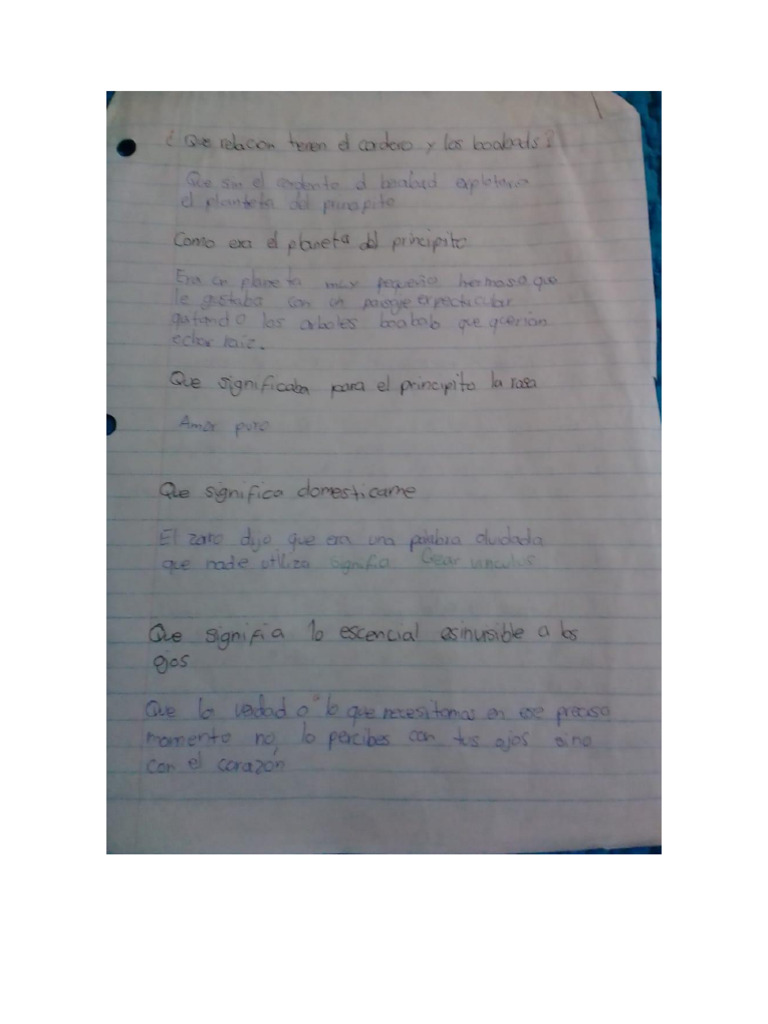 ¿ Que relacion tienen el cordero y los boabads?
Que sin el corderito el boabad explotaria
el planteta del principito
Como era el planeta del principito
Era un planeta muy pequeño hermoso que
le gustaba con un paisaje expecticular
quitando los arboles boabab que querian
echar raiz.
Que significaba para el principito la rosa
Amor puro
Que significa domesticame
El zorro dijo que era una palabra olvidada
que nadie utiliza significa Crear vinculos
Que signifia lo escencial esinvisible a los
ojos
Que la verdad o lo que necesitamos en ese preciso
momento no lo percibes con tus ojos sino
con el corazón